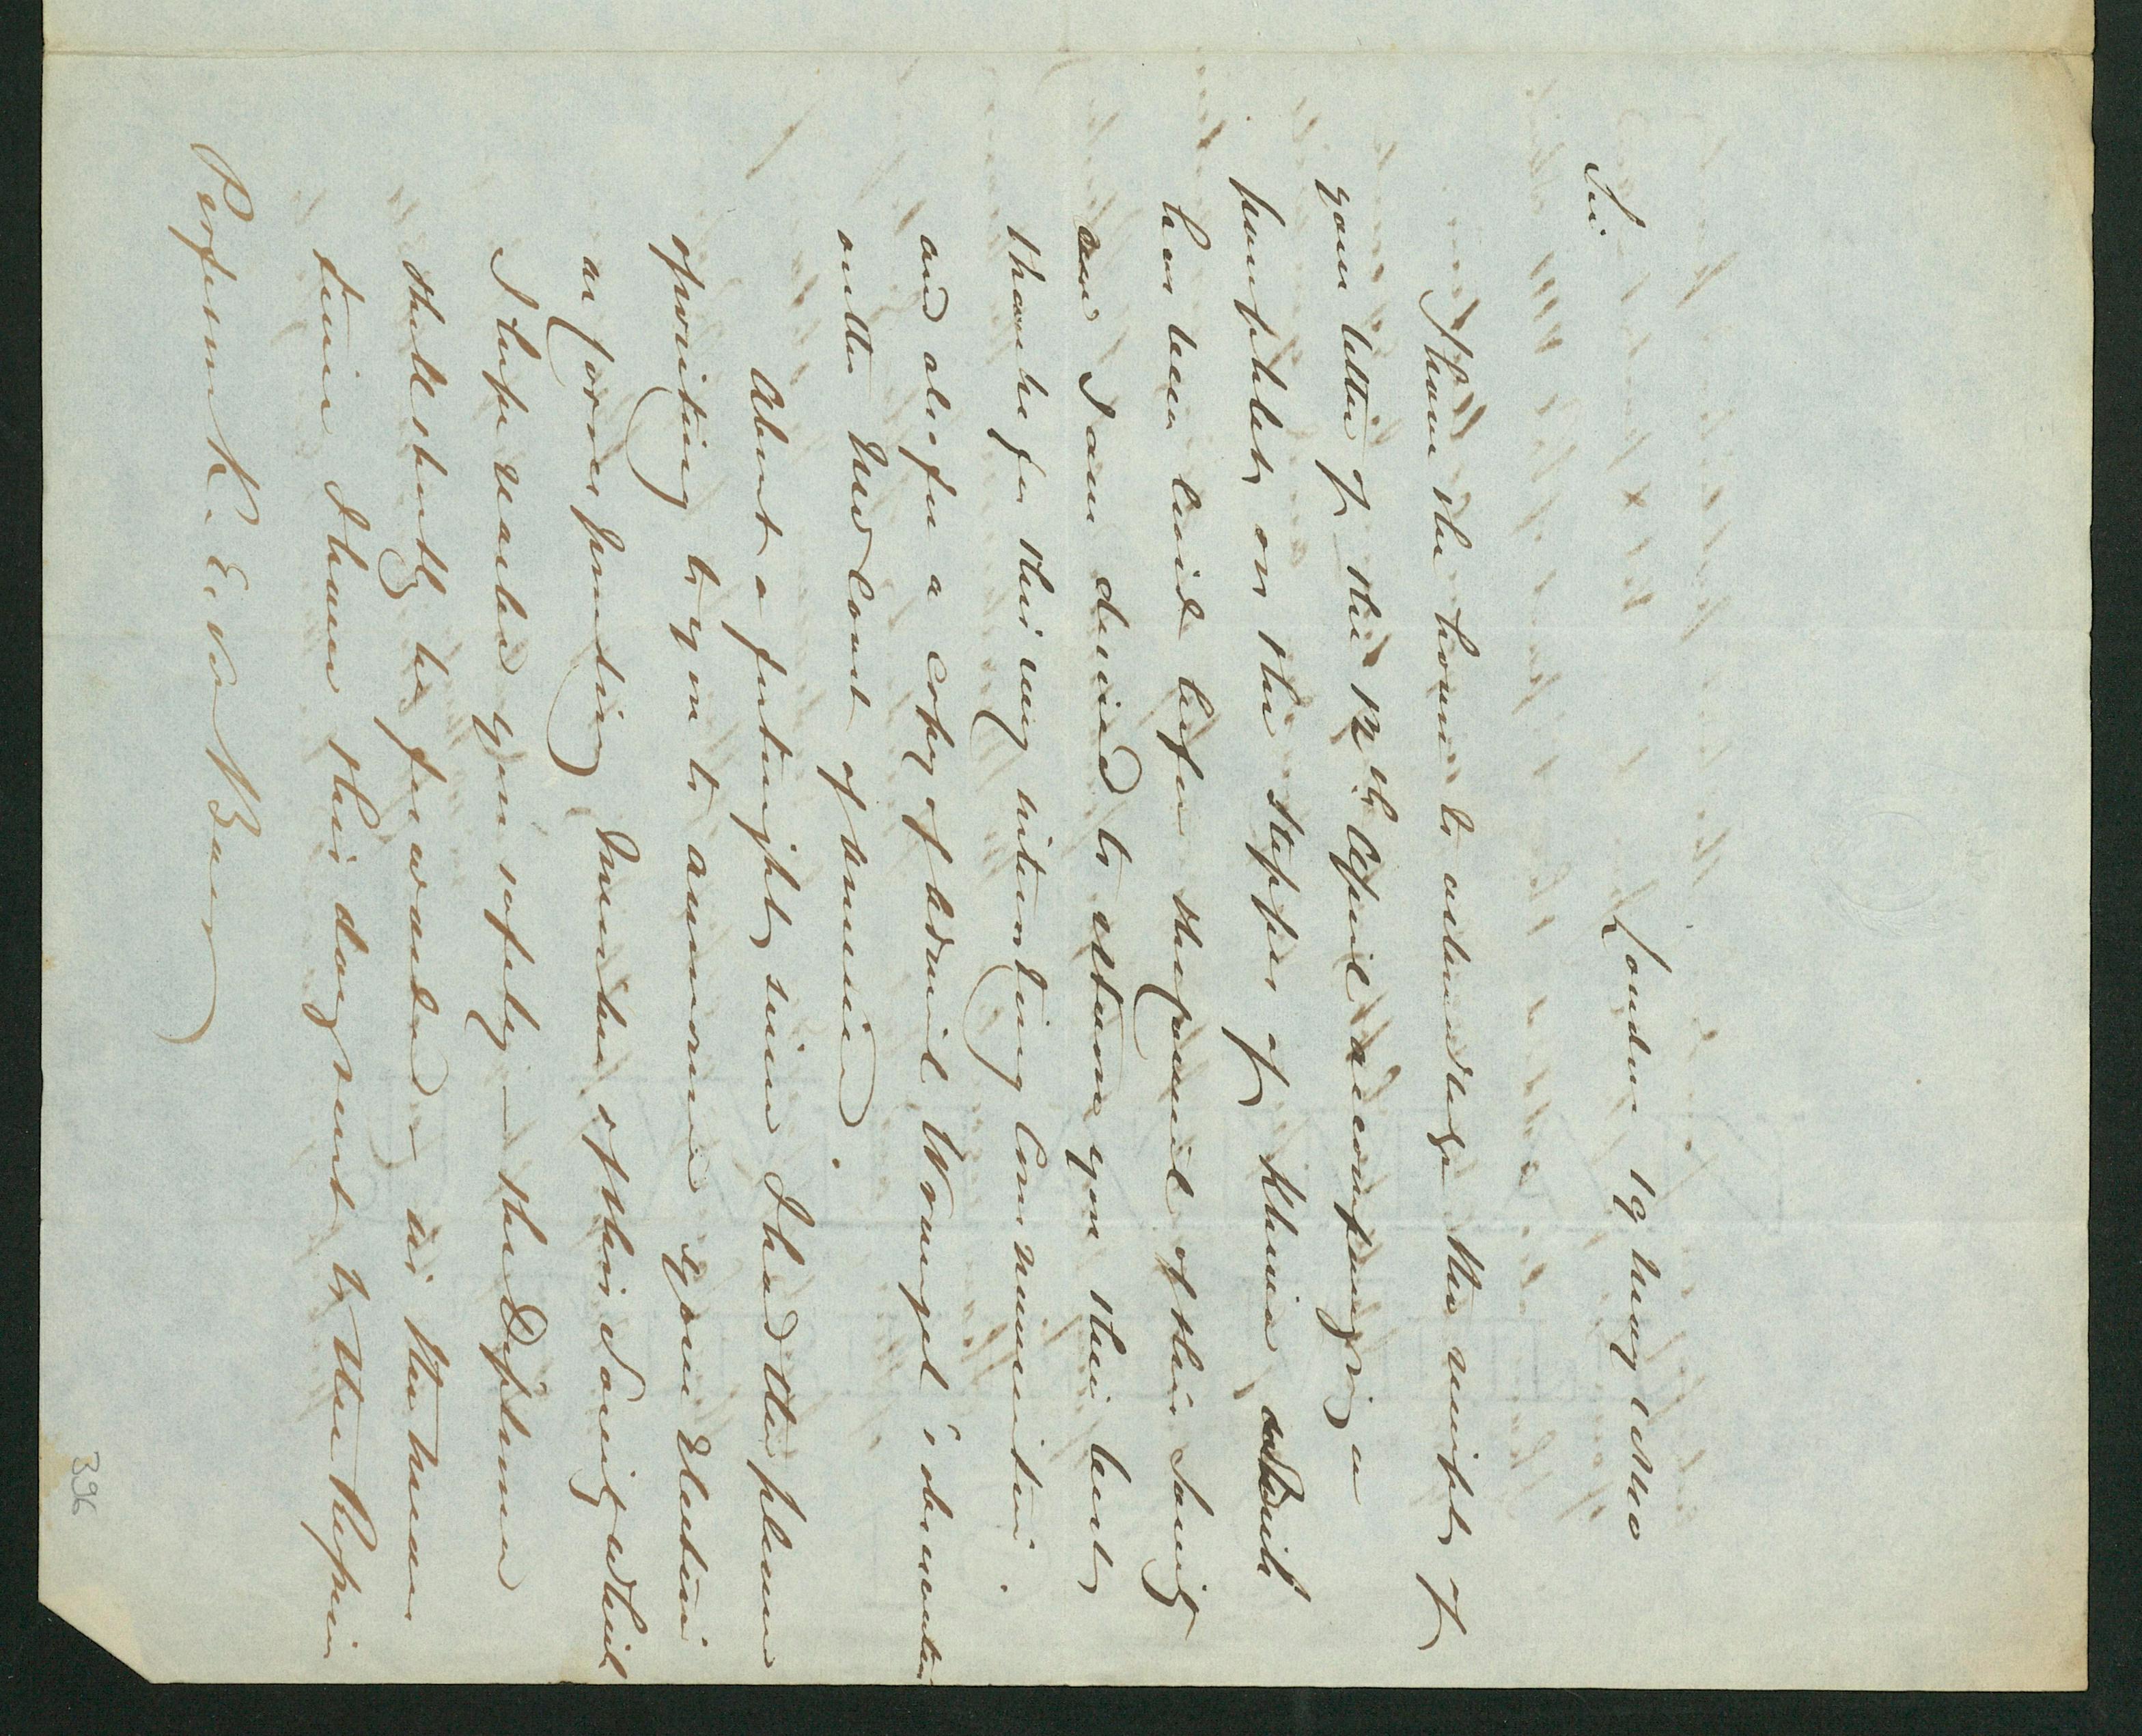 London 19 May 1840
Sir
I have the honour to acknowledge the receipt of
your letter of the 12th April accompanying a
pamphlet on the steppes of Khiva which
has been laid before the Council of this Society
and I am desired to return you their best
thanks for this very interesting Communication
and also for a copy of Admiral Wrangel's observations
on the NW Coast of America.
About a fortnight since I had the pleasure
of writing to you to announce your Election
as corresponding Member of this Society which
I hope reached you safely – the Diploma
shall shortly be forwarded – in the mean
time I have this day sent to the Russian
Professor K. E. von Baer
396